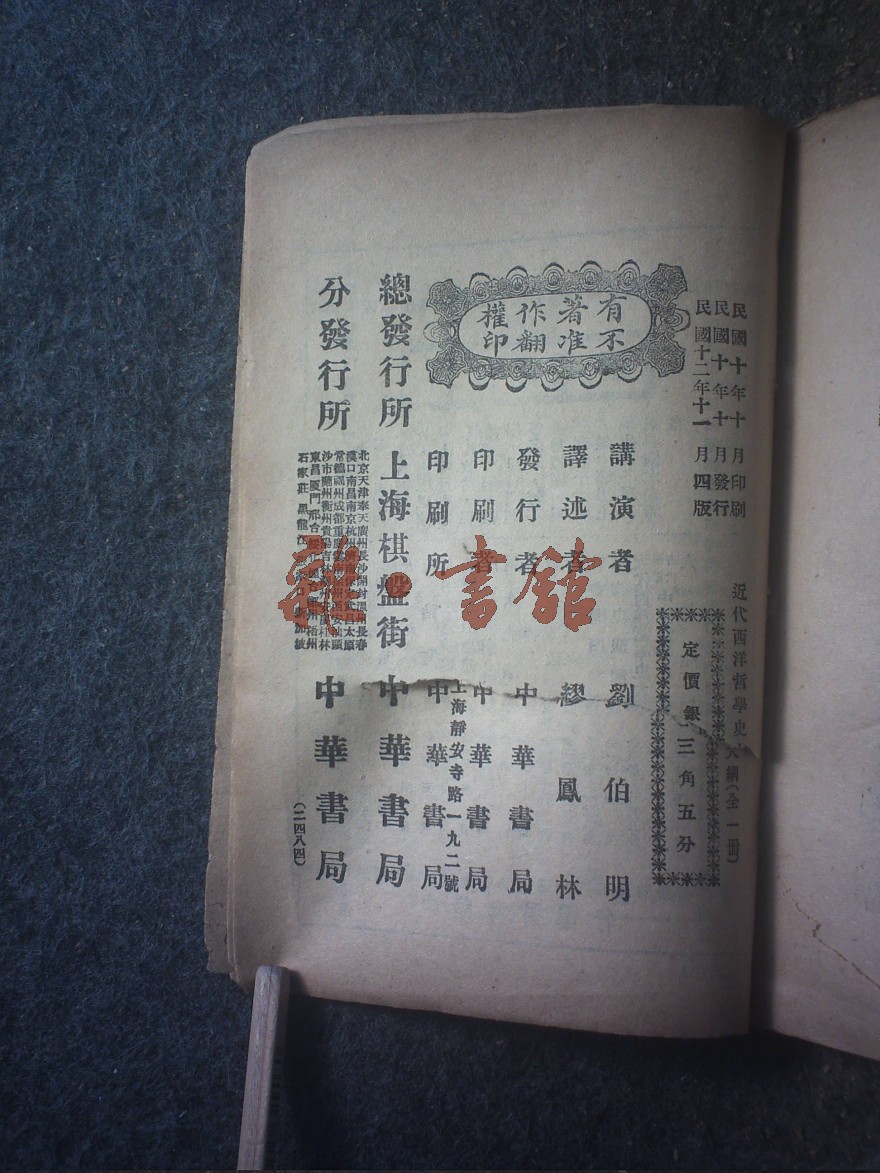 民國十年十月印刷
民國十年十月發行
民國十二年十一月四版
近代西洋哲學史大綱(全一冊)
定價銀三角五分
有著作權
不准翻印
講演者 劉伯明
譯述者 繆鳳林
發行者 中華書局
印刷者 中華書局
印刷所 上海靜安寺路一九二號
中華書局
總發行所 上海棋盤街 中華書局
分發行所 中華書局
北京天津奉天廣州長沙開封
漢口南昌南京杭州
常德福州成都重慶
沙市蘭州衡州貴陽
東昌廈門邢台
石家莊 黑龍江
(二四八四)
書館